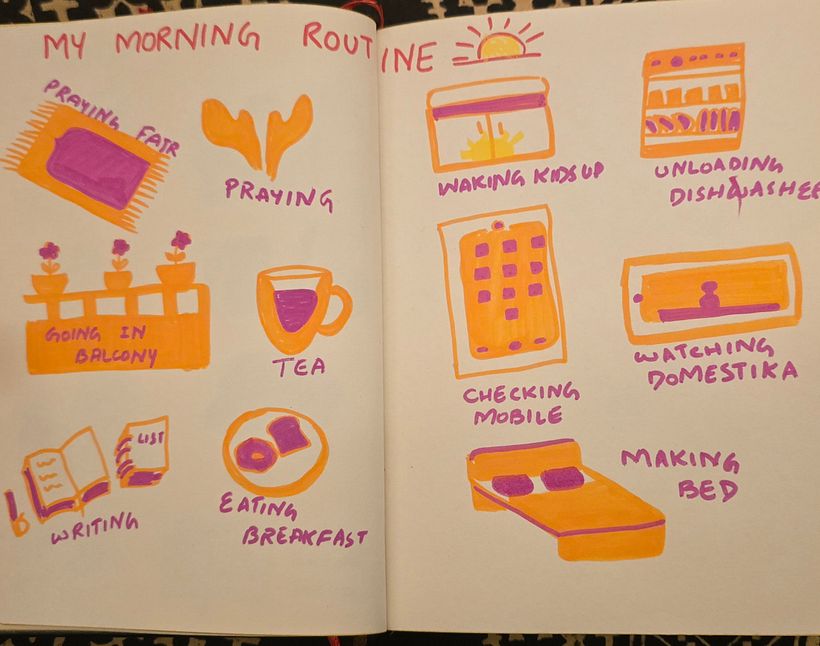 MY MORNING ROUTINE
PRAYING FAIR
PRAYING
GOING IN
BALCONY
TEA
LIST
WRITING
EATING
BREAKFAST
WAKING KIDS UP
UNLOADING
DISHWASHER
CHECKING
MOBILE
WATCHING
DOMESTIKA
MAKING
BED